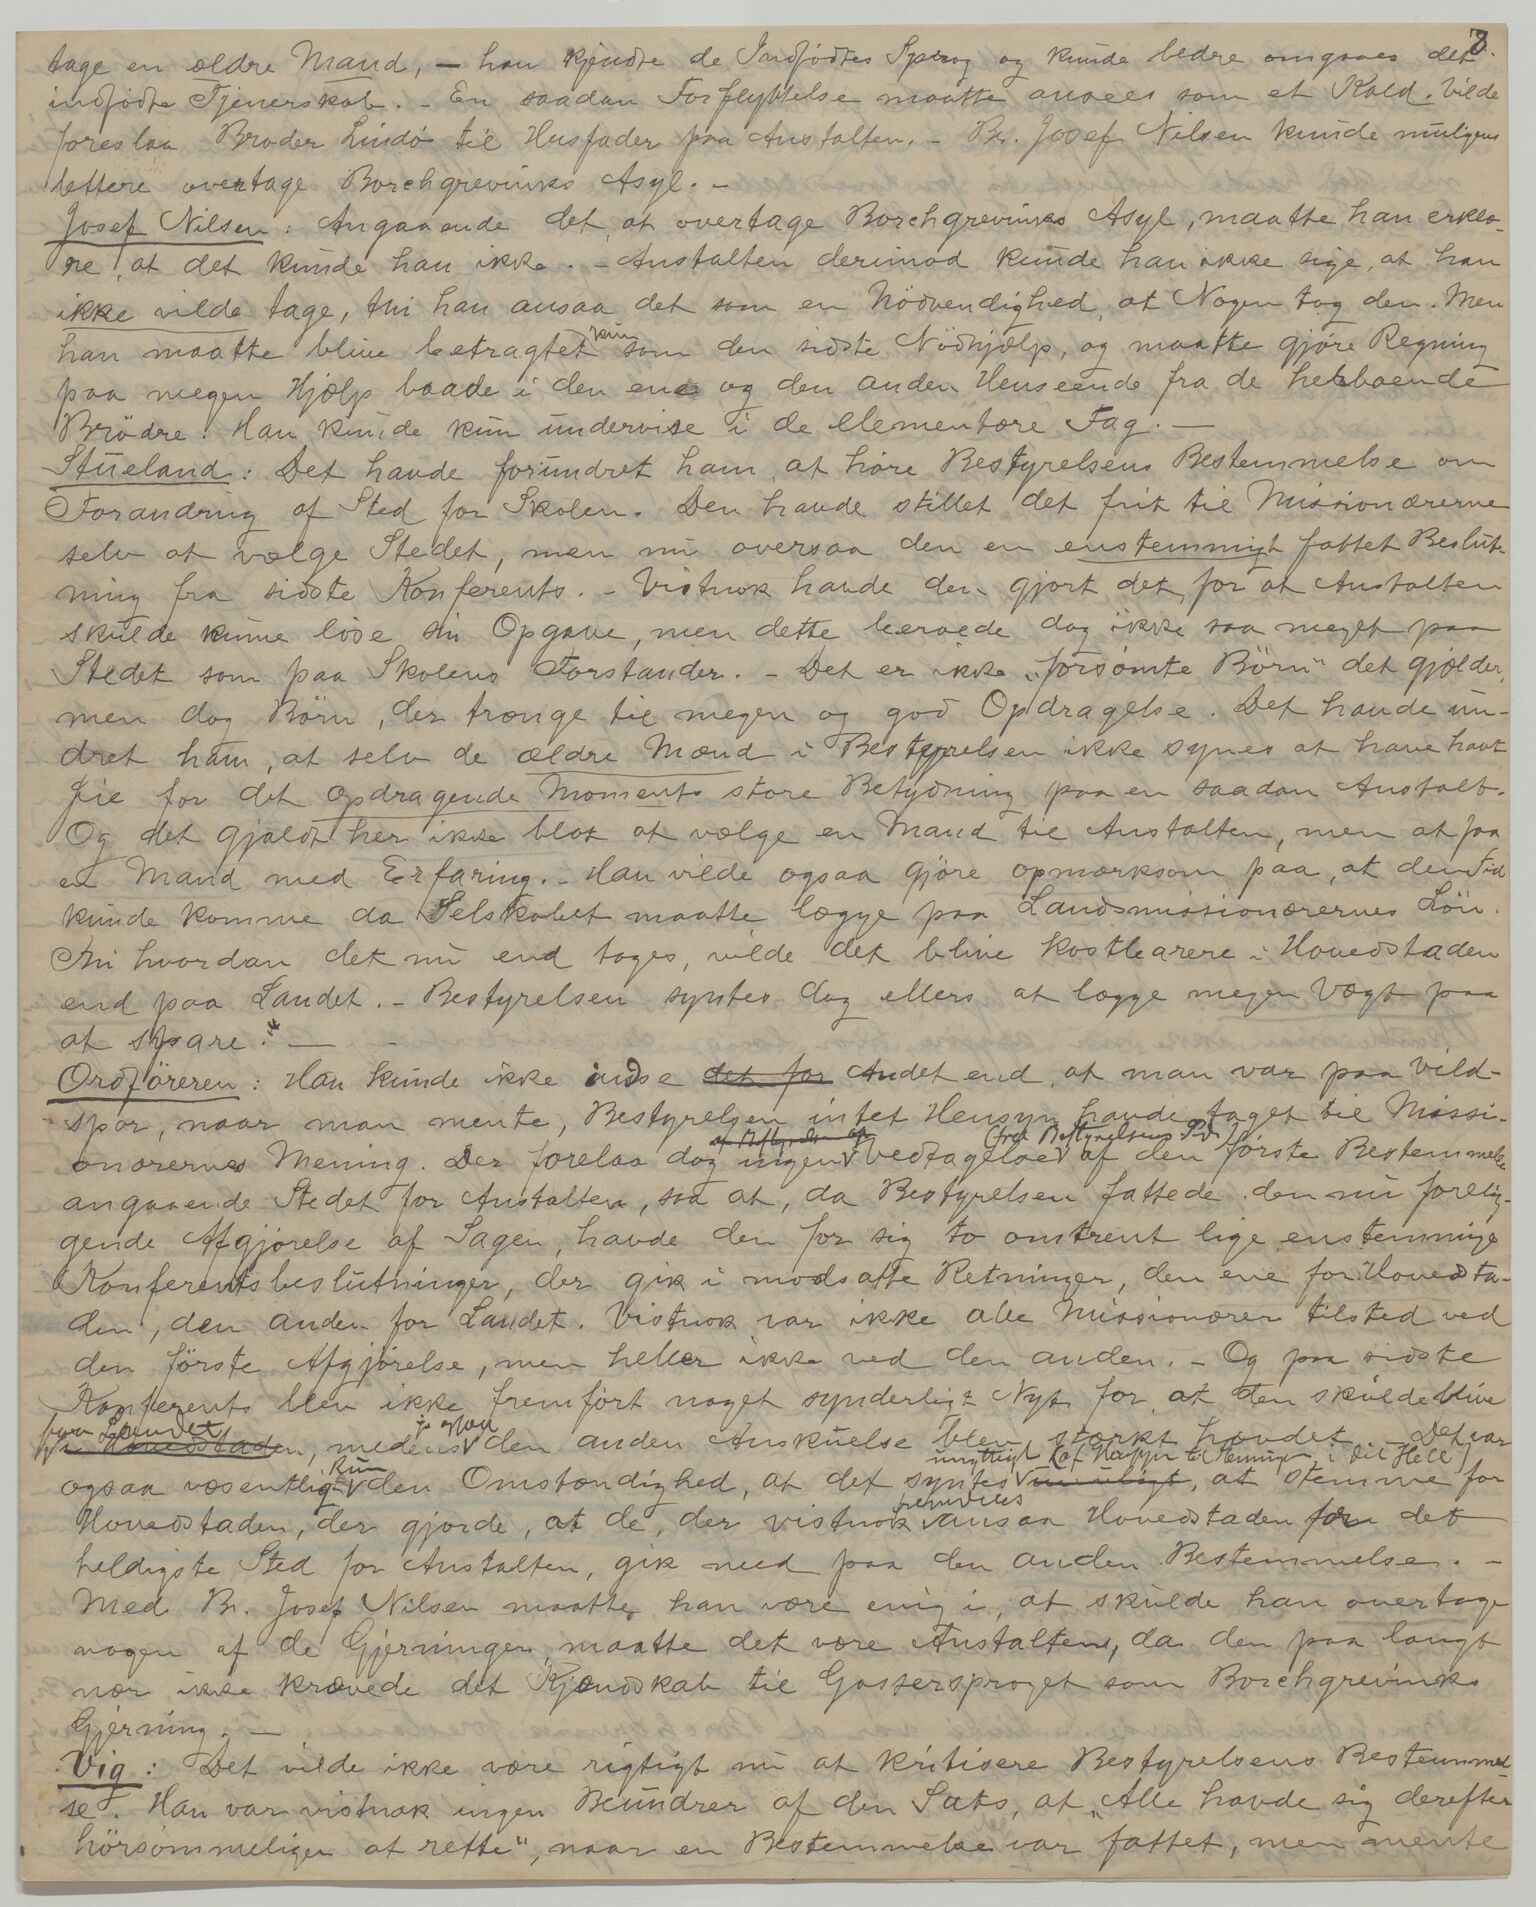 8.
tage en ældre Mand, – han kjendte de Indfødtes Sprog og kunde bedre omgaaes det
indfødte Tjenerskab. – En saadan Forflyttelse maatte ansees som et Kald. Vilde
foreslaa Broder Lindø til Husfader paa Anstalten. – Br. Josef Nilsen kunde muligens
lettere overtage Borchgrevinks Asyl. –
Josef Nilsen: Angaaende det, at overtage Borchgrevinks Asyl, maatte han erklæ-
re, at det kunde han ikke. – Anstalten derimod kunde han ikke sige, at han
ikke vilde tage, thi han ansaa det som en Nödvendighed, at Nogen tog den. Men
han maatte blive betragtet kun som den sidste Nödhjælp, og maatte gjøre Regning
paa megen Hjælp baade i den ene og den anden Henseende fra de herboende
Brödre. Han kunde kun undervise i de elementære Fag. –
Stueland: Det havde forundret ham at høre Bestyrelsens Bestemmelse om
Forandring af Sted for Skolen. Den havde stillet det frit til Missionærerne
selv at vælge Stedet, men nu oversaa den en enstemmigt fattet Beslut-
ning fra sidste Konferents. – Vistnok havde den gjort det, for at Anstalten
skulde kunne løse sin Opgave, men dette beroede dog ikke saa meget paa
Stedet som paa Skolens Forstander. – Det er ikke "forsømte Börn" det gjælder,
men dog Börn, der trænge til megen og god Opdragelse. Det havde un-
dret ham, at selv de ældre Mænd i Bestyrelsen ikke synes at have havt
Øie for det opdragende Moments store Betydning paa en saadan Anstalt.
Og det gjaldt her ikke blot at vælge en Mand til Anstalten, men at faa
en Mand med Erfaring. – Han vilde ogsaa gjöre opmærksom paa, at den Tid
kunde komme da Selskabet maatte lægge paa Landsmissionærernes Lön.
Thi hvordan det nu end toges, vilde det blive kostbarere i Hovedstaden
end paa Landet. – Bestyrelsen syntes dog ellers at lægge megen Vægt paa
at spare." –
Ordföreren: Han kunde ikke indse det for Andet end, at man var paa Vild-
spor, naar man mente, Bestyrelsen intet Hensyn havde taget til Missi-
onærernes Mening. Der forelaa dog ingen Vedtagelse af den første Bestemmelse
angaaende Stedet for Anstalten, saa at, da Bestyrelsen fattede den nu forelig-
gende Afgjörelse af Sagen, havde den for sig to omtrent lige enstemmige
Konferentsbeslutninger, der gik i modsatte Retninger, den ene for Hovedsta-
den, den anden for Landet. Vistnok var ikke alle Missionærer tilsted ved
den förste Afgjörelse, men heller ikke ved den anden. – Og paa sidste
Konferents blev ikke fremført noget synderligt Nyt for, at den skulde blive
paa Landet i Hovedstaden, medens den anden Anskuelse blev stærkt hævdet. – Det var
ogsaa væsentlig kun den Omstændighed, at det syntes unyttigt umuligt, at stemme for
Hovedstaden, der gjorde, at de, der vistnok fremdeles ansaa Hovedstaden for det
heldigste Sted for Anstalten, gik med paa den anden Bestemmelse. –
Med Br. Josef Nilsen maatte han være enig i, at skulde han overtage
nogen af de Gjerninger, maatte det være Anstalten, da den paa langt
nær ikke krævede det Kjendskab til Gassersproget som Borchgrevinks
Gjerning. –
Vig: Det vilde ikke være rigtigt nu at kritisere Bestyrelsens Bestemmel-
se. Han var vistnok ingen Beundrer af den Sats, at "Alle havde sig derefter
hörsommeligen at rette", naar en Bestemmelse var fattet, men mente